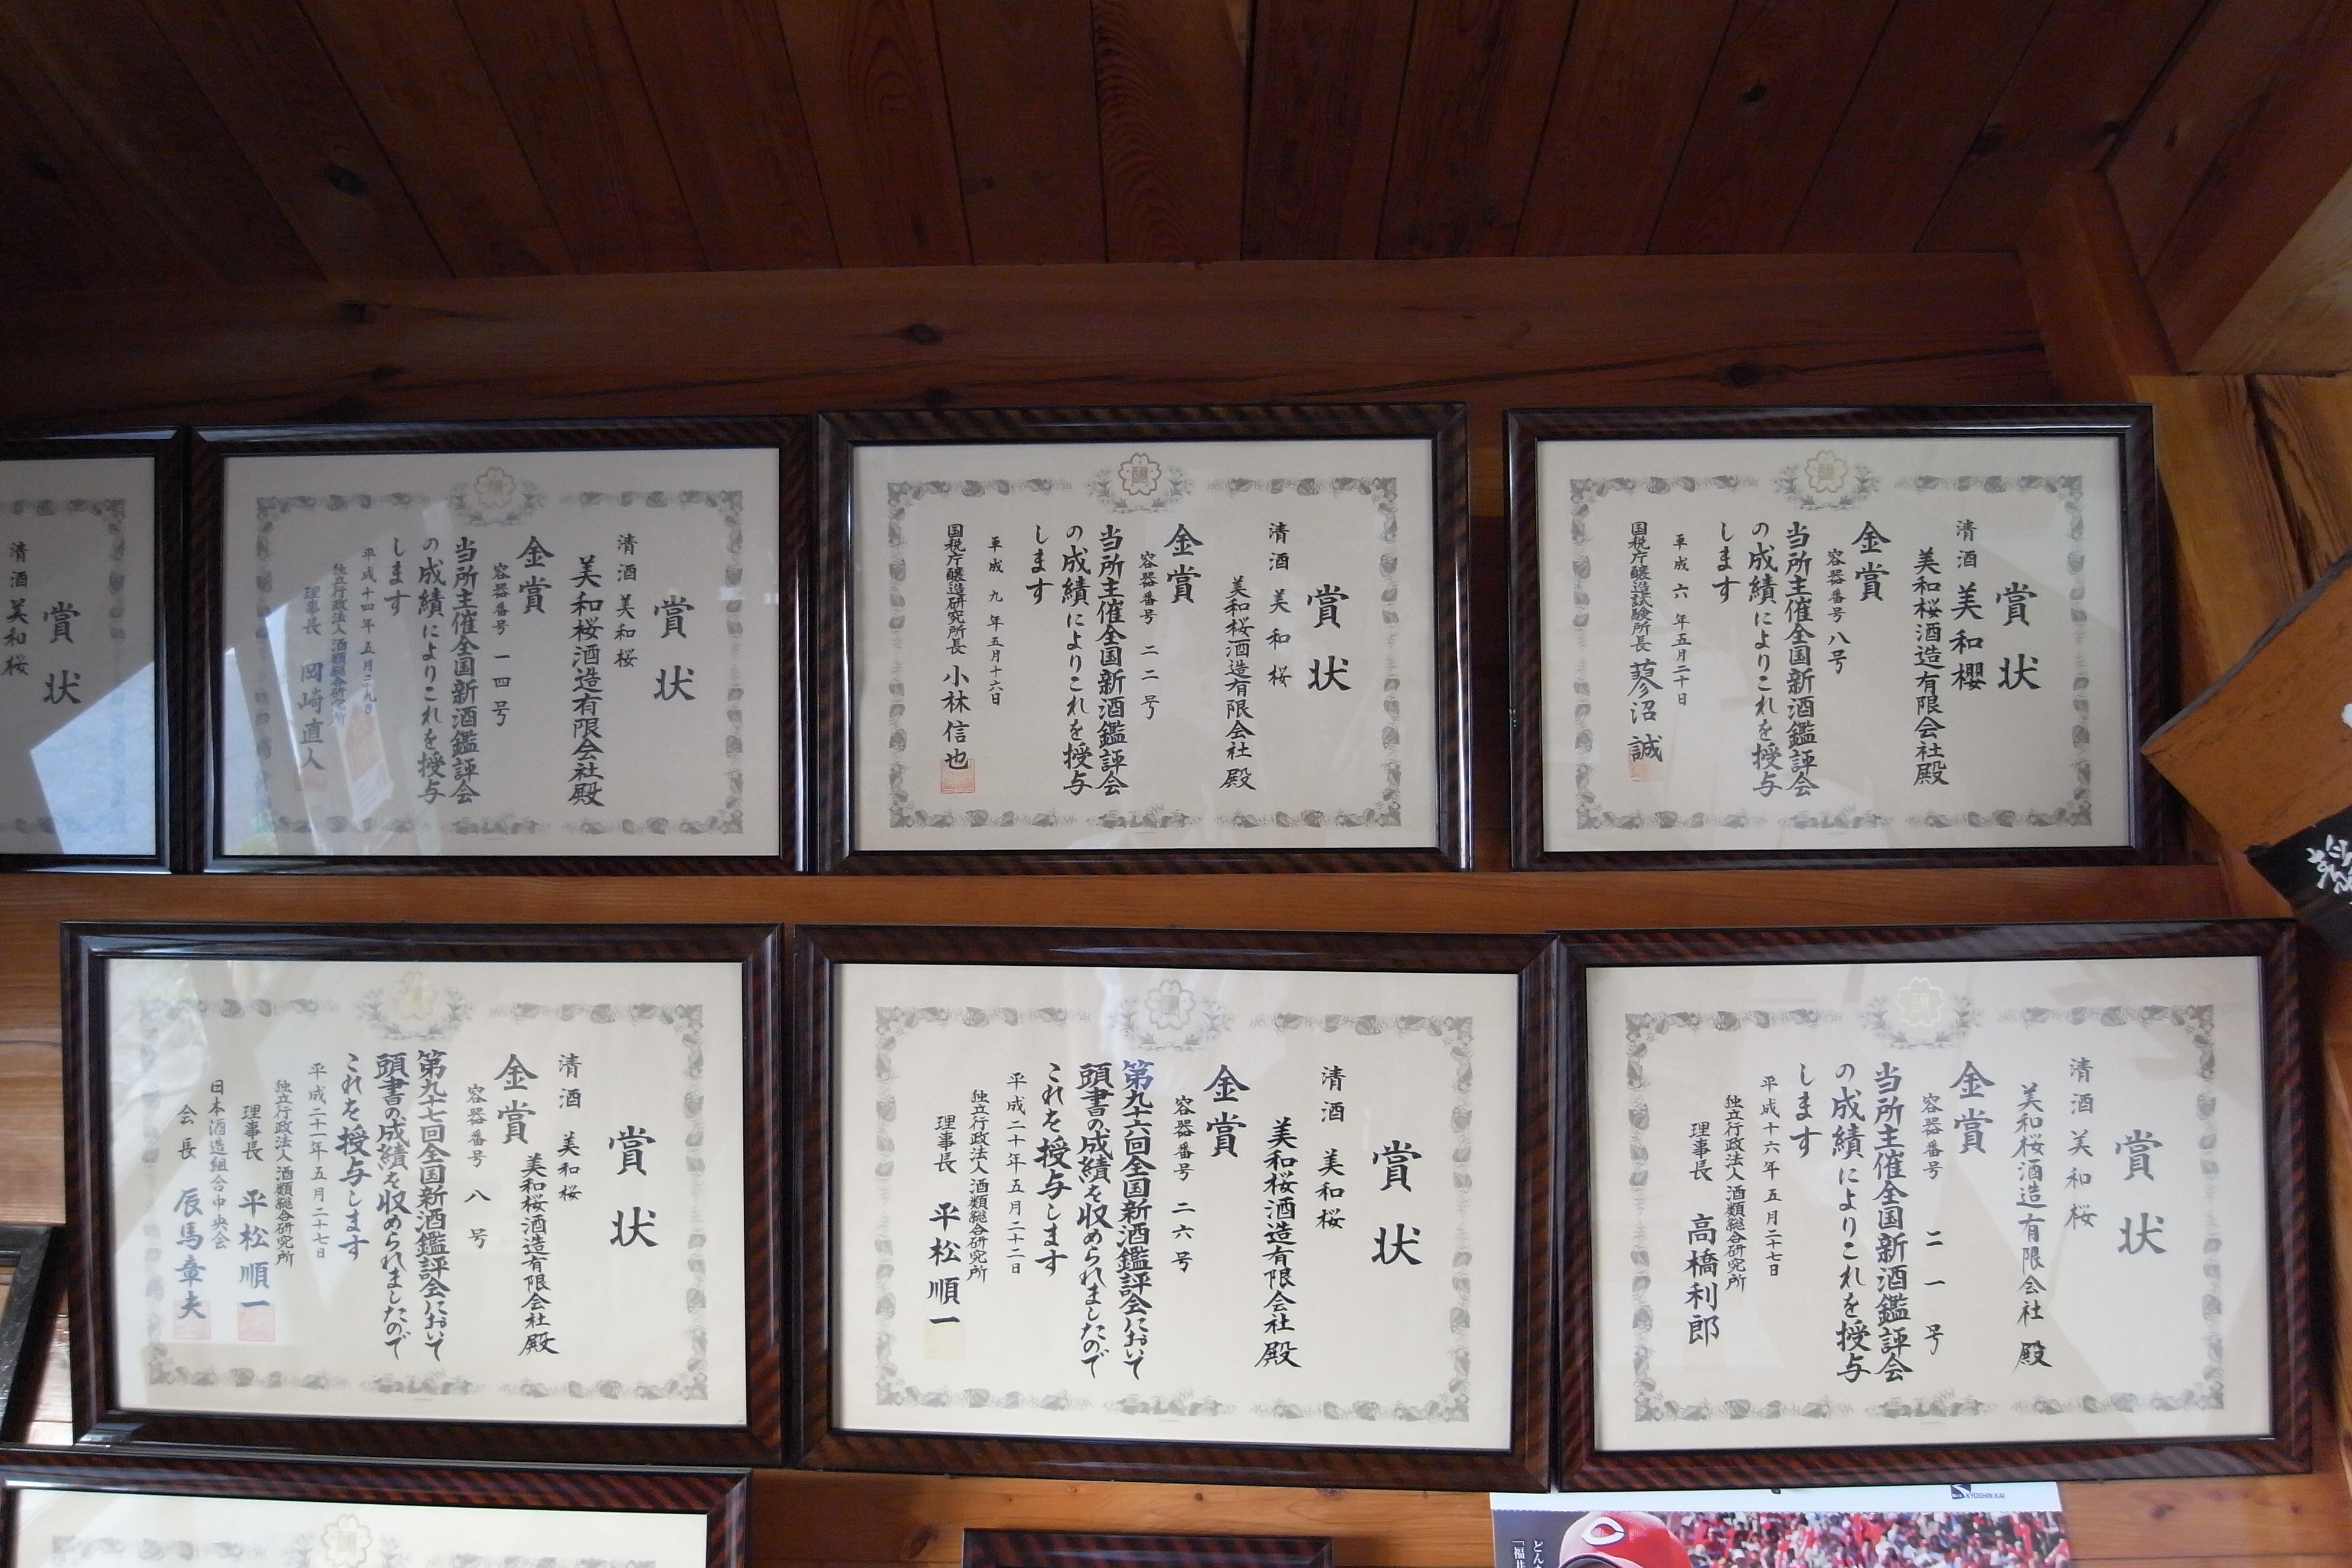 賞状
清酒 美和櫻
美和桜酒造有限会社殿
金賞
容器番号 八号
当所主催全国新酒鑑評会
の成績によりこれを授与
します
平成六年五月二十日
国税庁醸造試験所長 蓼沼誠
賞状
清酒 美和桜
美和桜酒造有限会社殿
金賞
容器番号 二二号
当所主催全国新酒鑑評会
の成績によりこれを授与
します
平成九年五月十六日
国税庁醸造研究所長 小林信也
賞状
清酒 美和桜
美和桜酒造有限会社殿
金賞
容器番号 一四号
当所主催全国新酒鑑評会
の成績によりこれを授与
します
平成十四年五月二九日
独立行政法人 酒類総合研究所
理事長 岡崎直人
賞状
清酒 美和桜
賞状
清酒 美和桜
美和桜酒造有限会社殿
金賞
容器番号 二一号
当所主催全国新酒鑑評会
の成績によりこれを授与
します
平成十六年五月二十七日
独立行政法人 酒類総合研究所
理事長 高橋利郎
賞状
清酒 美和桜
美和桜酒造有限会社殿
金賞
容器番号 二六号
第九十六回全国新酒鑑評会において
頭書の成績を収められましたので
これを授与します
平成二十年五月二十二日
独立行政法人 酒類総合研究所
理事長 平松順一
賞状
清酒 美和桜
美和桜酒造有限会社殿
金賞
容器番号 八号
第九十七回全国新酒鑑評会において
頭書の成績を収められましたので
これを授与します
平成二十一年五月二十七日
独立行政法人 酒類総合研究所
理事長 平松順一
日本酒造組合中央会
会長 辰馬章夫
KYOSHIN KAI
どん